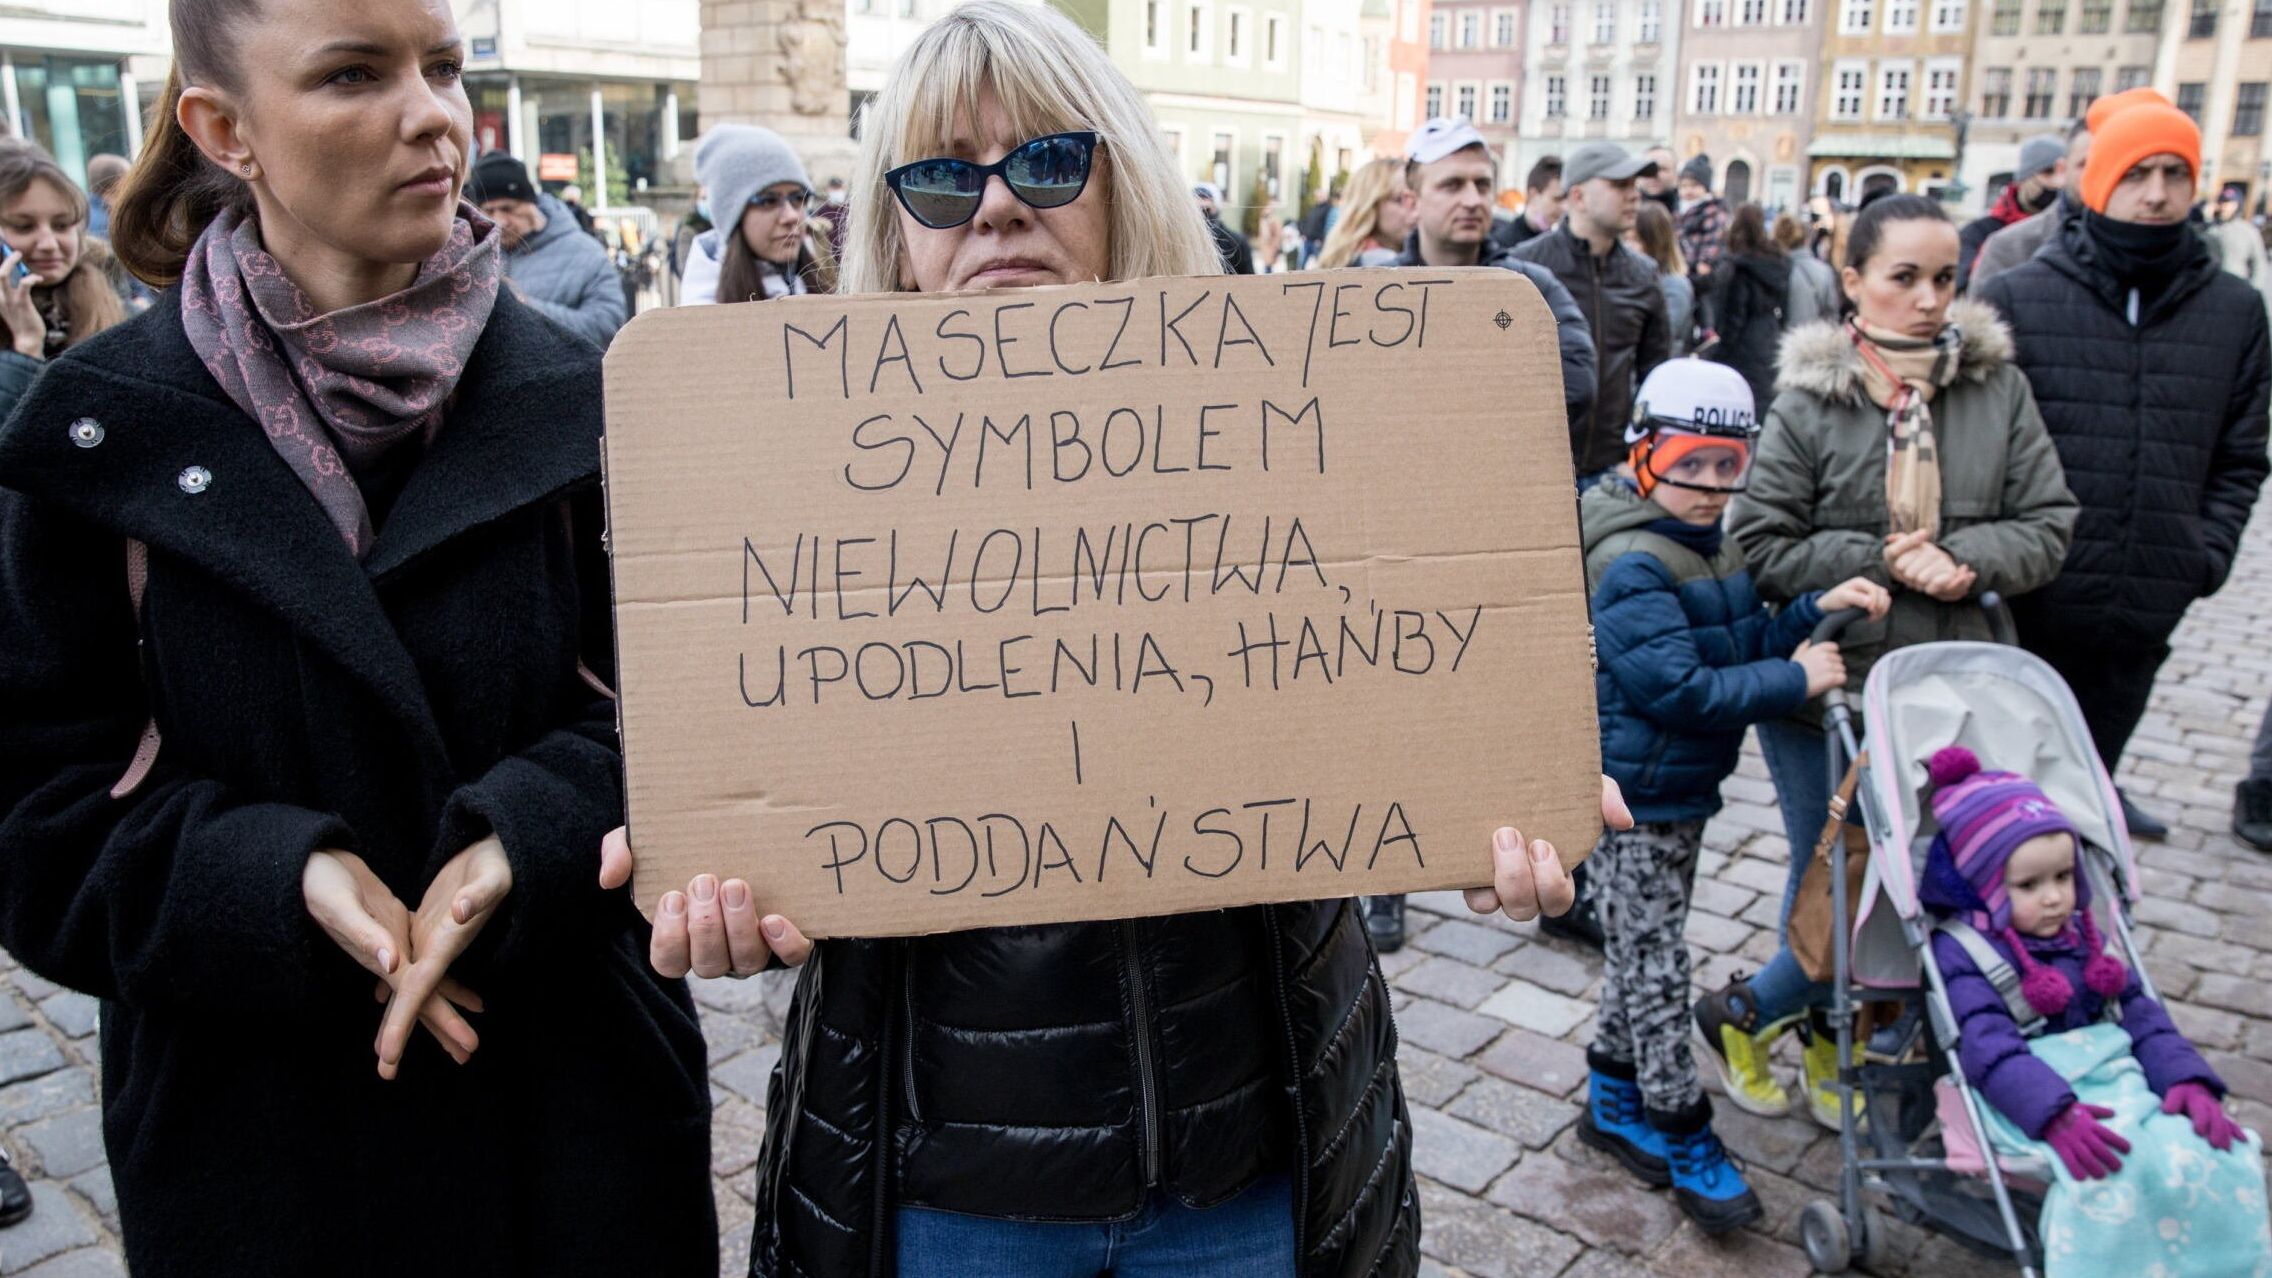 MASECZKA JEST
SYMBOLEM
NIEWOLNICTWA,
UPODLENIA, HAŃBY
I
PODDAŃSTWA
POLICE